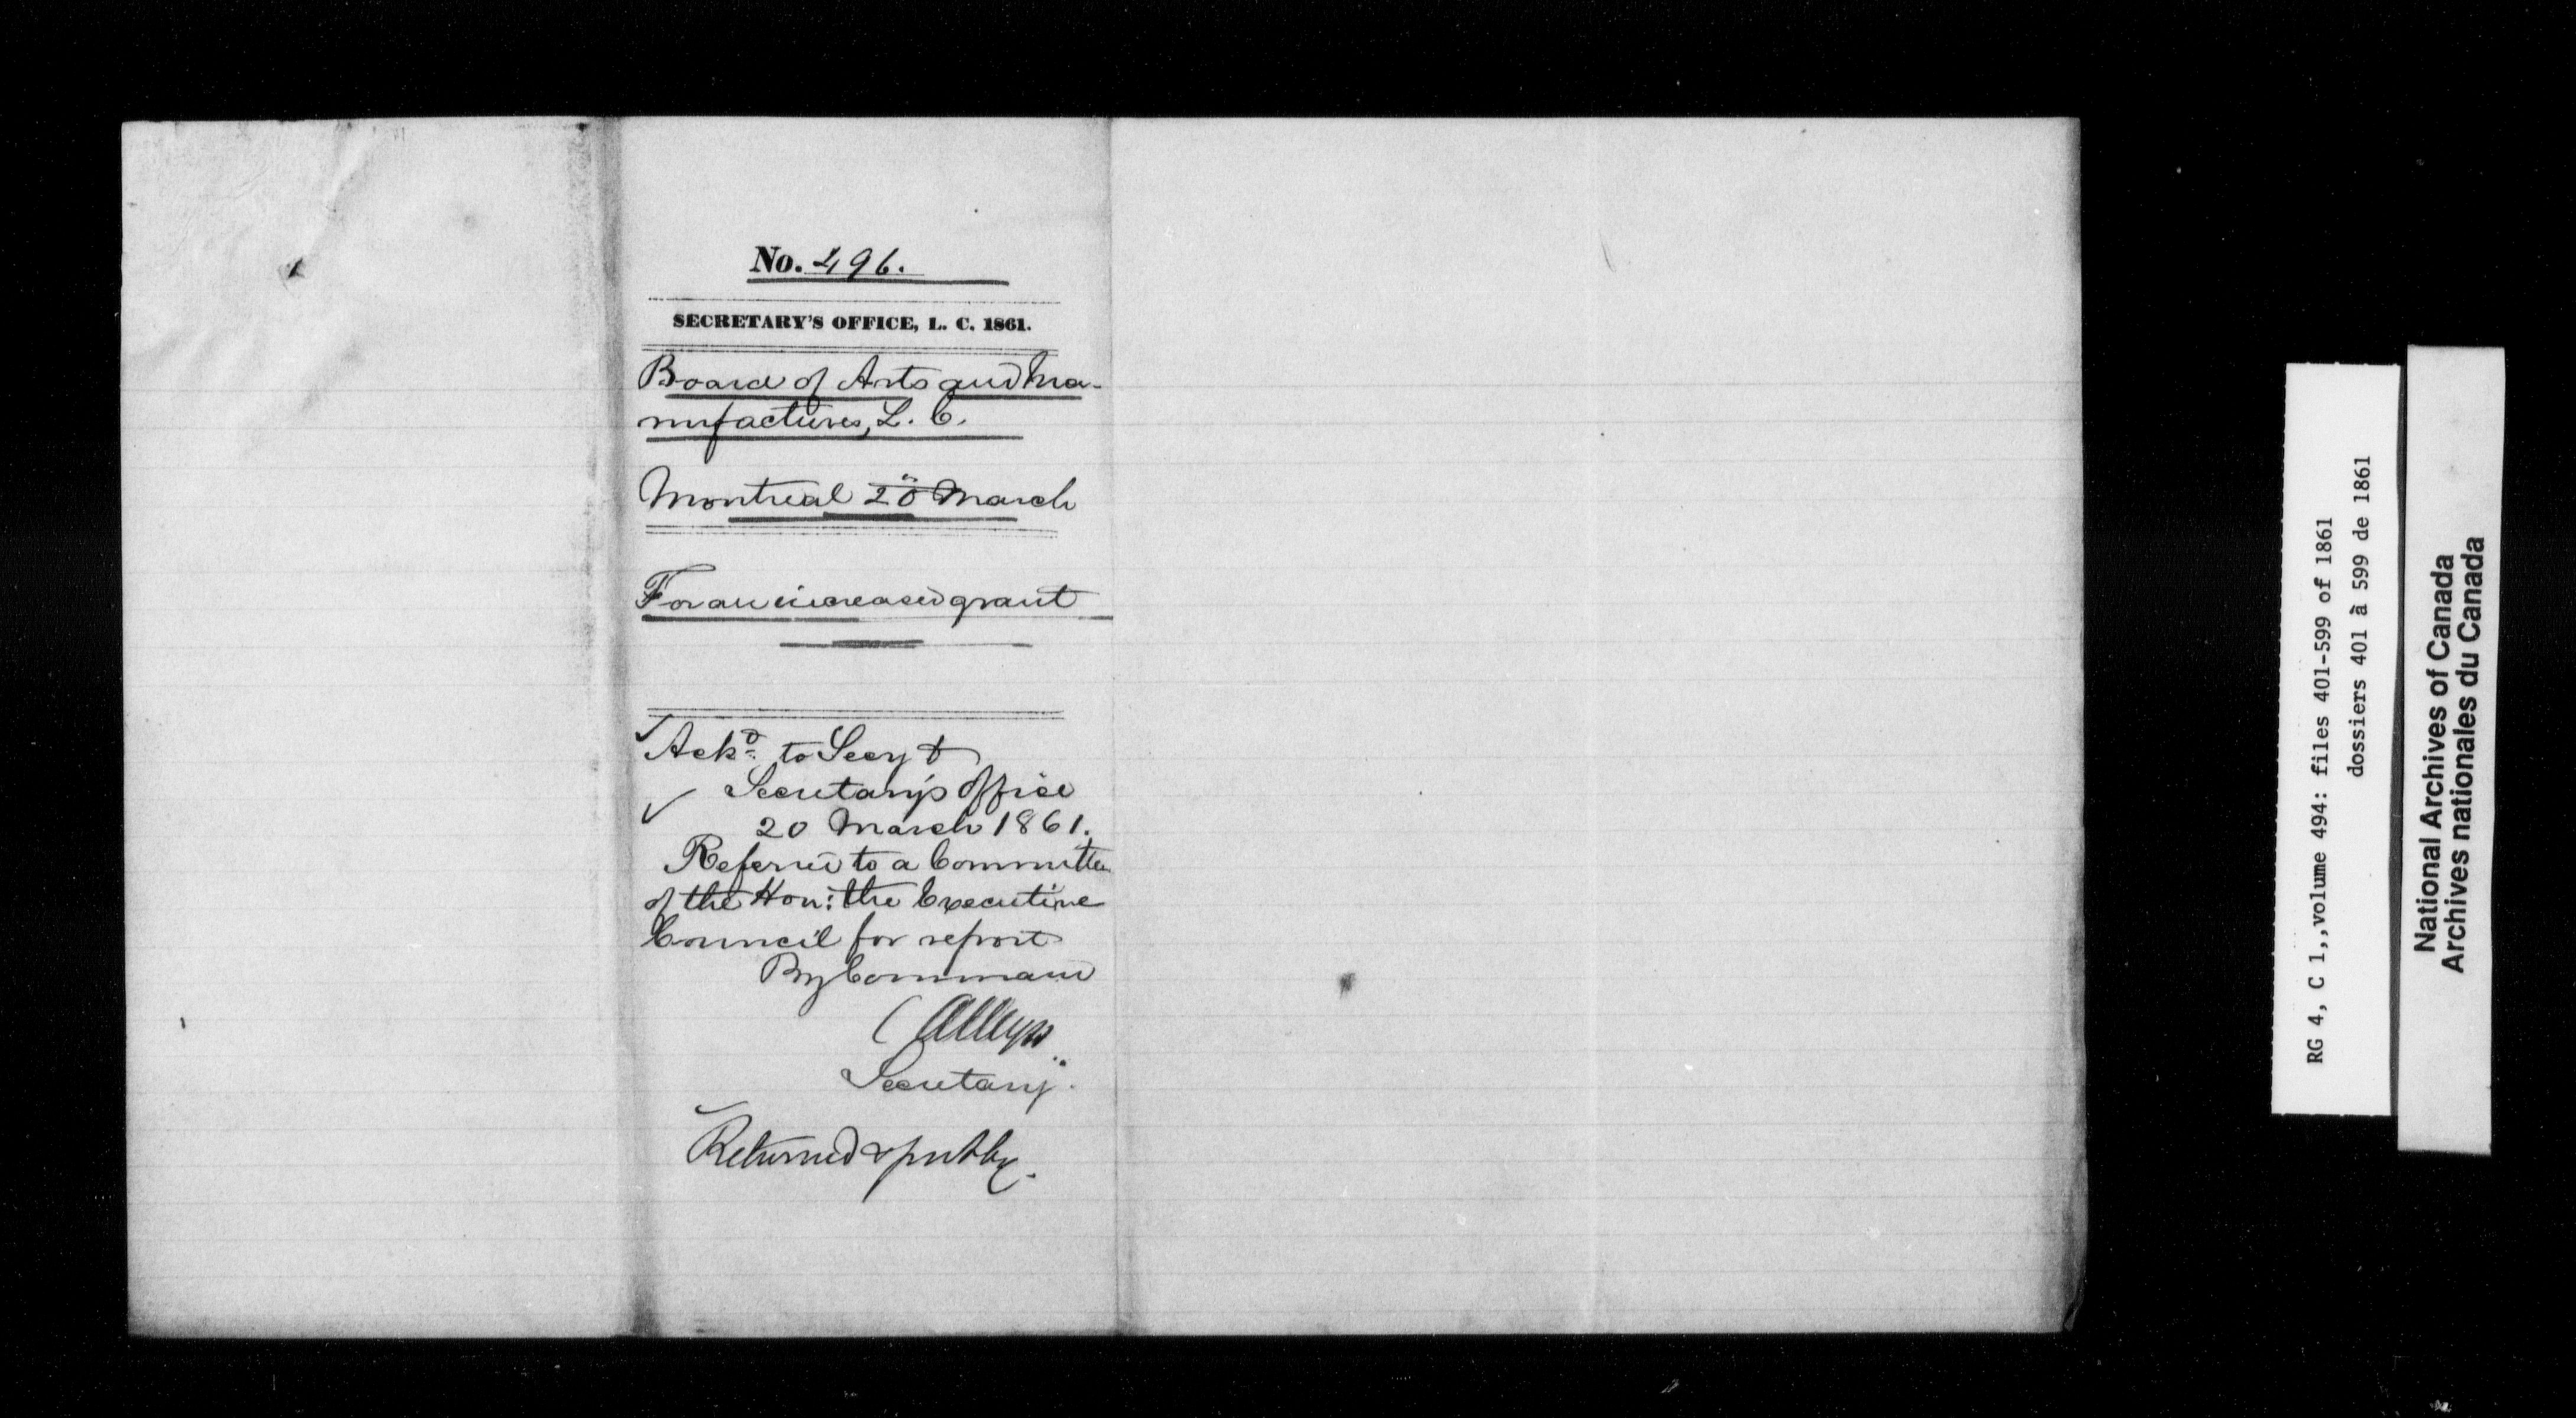 No. 496.
SECRETARY'S OFFICE, L. C. 1861.
Board of Arts and Ma-
nufactures, L. C.
Montreal 20 March
For an increased grant
Ackd. to Secy
Secretary's Office
20 March 1861.
Referred to a Committee
of the Hon: the Executive
Council for report
By Command
C Alleyn
Secretary.
Returned & put by.
RG 4, C 1,,volume 494: files 401-599 of 1861
dossiers 401 à 599 de 1861
National Archives of Canada
Archives nationales du Canada